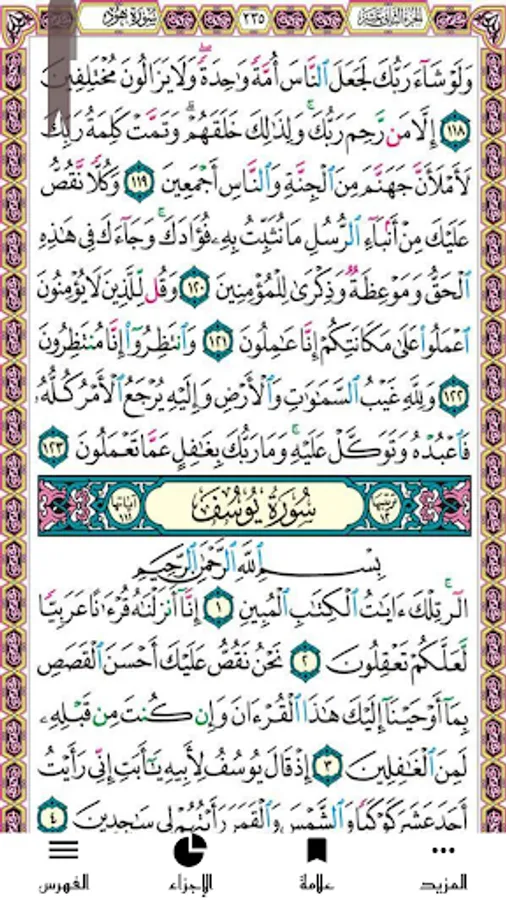 الجزء الثاني عشر ٢٣٥ سورة هود
وَلَوْ شَآءَ رَبُّكَ لَجَعَلَ ٱلنَّاسَ أُمَّةً وَٰحِدَةً ۖ وَلَا يَزَالُونَ مُخْتَلِفِينَ
١١٨ إِلَّا مَن رَّحِمَ رَبُّكَ ۚ وَلِذَٰلِكَ خَلَقَهُمْ ۗ وَتَمَّتْ كَلِمَةُ رَبِّكَ
لَأَمْلَأَنَّ جَهَنَّمَ مِنَ ٱلْجِنَّةِ وَٱلنَّاسِ أَجْمَعِينَ ١١٩ وَكُلًّا نَّقُصُّ
عَلَيْكَ مِنْ أَنۢبَآءِ ٱلرُّسُلِ مَا نُثَبِّتُ بِهِۦ فُؤَادَكَ ۚ وَجَآءَكَ فِى هَٰذِهِ
ٱلْحَقُّ وَمَوْعِظَةٌ وَذِكْرَىٰ لِلْمُؤْمِنِينَ ١٢٠ وَقُل لِّلَّذِينَ لَا يُؤْمِنُونَ
ٱعْمَلُوا۟ عَلَىٰ مَكَانَتِكُمْ إِنَّا عَٰمِلُونَ ١٢١ وَٱنتَظِرُوٓا۟ إِنَّا مُنتَظِرُونَ
١٢٢ وَلِلَّهِ غَيْبُ ٱلسَّمَٰوَٰتِ وَٱلْأَرْضِ وَإِلَيْهِ يُرْجَعُ ٱلْأَمْرُ كُلُّهُۥ
فَٱعْبُدْهُ وَتَوَكَّلْ عَلَيْهِ ۚ وَمَا رَبُّكَ بِغَٰفِلٍ عَمَّا تَعْمَلُونَ ١٢٣
ترتيبها ١٢ سُورَةُ يُوسُفَ آياتها ١١١
بِسْمِ ٱللَّهِ ٱلرَّحْمَٰنِ ٱلرَّحِيمِ
الٓر ۚ تِلْكَ ءَايَٰتُ ٱلْكِتَٰبِ ٱلْمُبِينِ ١ إِنَّآ أَنزَلْنَٰهُ قُرْءَٰنًا عَرَبِيًّا
لَّعَلَّكُمْ تَعْقِلُونَ ٢ نَحْنُ نَقُصُّ عَلَيْكَ أَحْسَنَ ٱلْقَصَصِ
بِمَآ أَوْحَيْنَآ إِلَيْكَ هَٰذَا ٱلْقُرْءَانَ وَإِن كُنتَ مِن قَبْلِهِۦ
لَمِنَ ٱلْغَٰفِلِينَ ٣ إِذْ قَالَ يُوسُفُ لِأَبِيهِ يَٰٓأَبَتِ إِنِّى رَأَيْتُ
أَحَدَ عَشَرَ كَوْكَبًا وَٱلشَّمْسَ وَٱلْقَمَرَ رَأَيْتُهُمْ لِى سَٰجِدِينَ ٤
المزيد علامة الإجزاء الفهرس